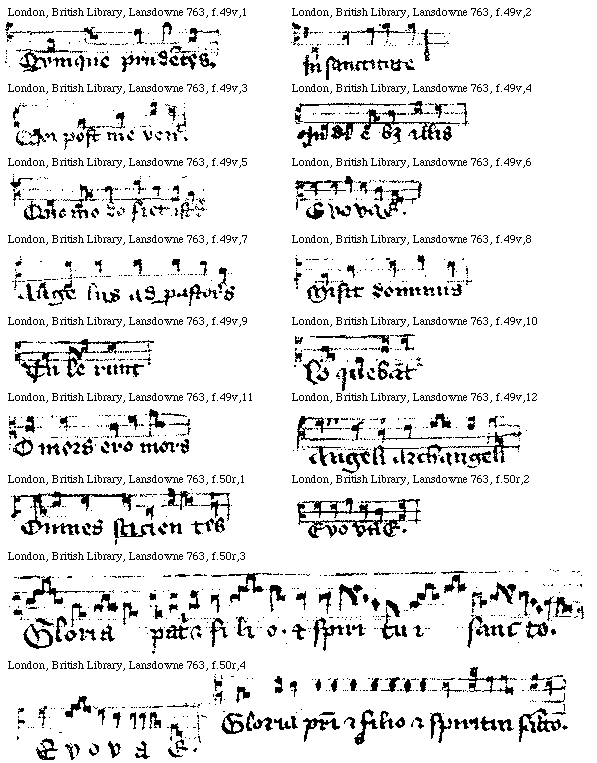 London, British Library, Lansdowne 763, f.49v,1
London, British Library, Lansdowne 763, f.49v,2
Qvinque prudētes.
In sanctitate
London, British Library, Lansdowne 763, f.49v,3
London, British Library, Lansdowne 763, f.49v,4
Qui post me ven.
illis
London, British Library, Lansdowne 763, f.49v,5
London, British Library, Lansdowne 763, f.49v,6
fiet
Evovae.
London, British Library, Lansdowne 763, f.49v,7
London, British Library, Lansdowne 763, f.49v,8
Ange lus ad pastors
Misit dominus
London, British Library, Lansdowne 763, f.49v,9
London, British Library, Lansdowne 763, f.49v,10
Tu le runt
Lo quebāt
London, British Library, Lansdowne 763, f.49v,11
London, British Library, Lansdowne 763, f.49v,12
O mors ero mors
Angeli Archangeli
London, British Library, Lansdowne 763, f.50r,1
London, British Library, Lansdowne 763, f.50r,2
Omnes sicien tes
Evovae.
London, British Library, Lansdowne 763, f.50r,3
Gloria pat i fi li o. & spiri tu i sanc to.
London, British Library, Lansdowne 763, f.50r,4
Gloria pri & filio & spiritui scto.
E v o v a E.